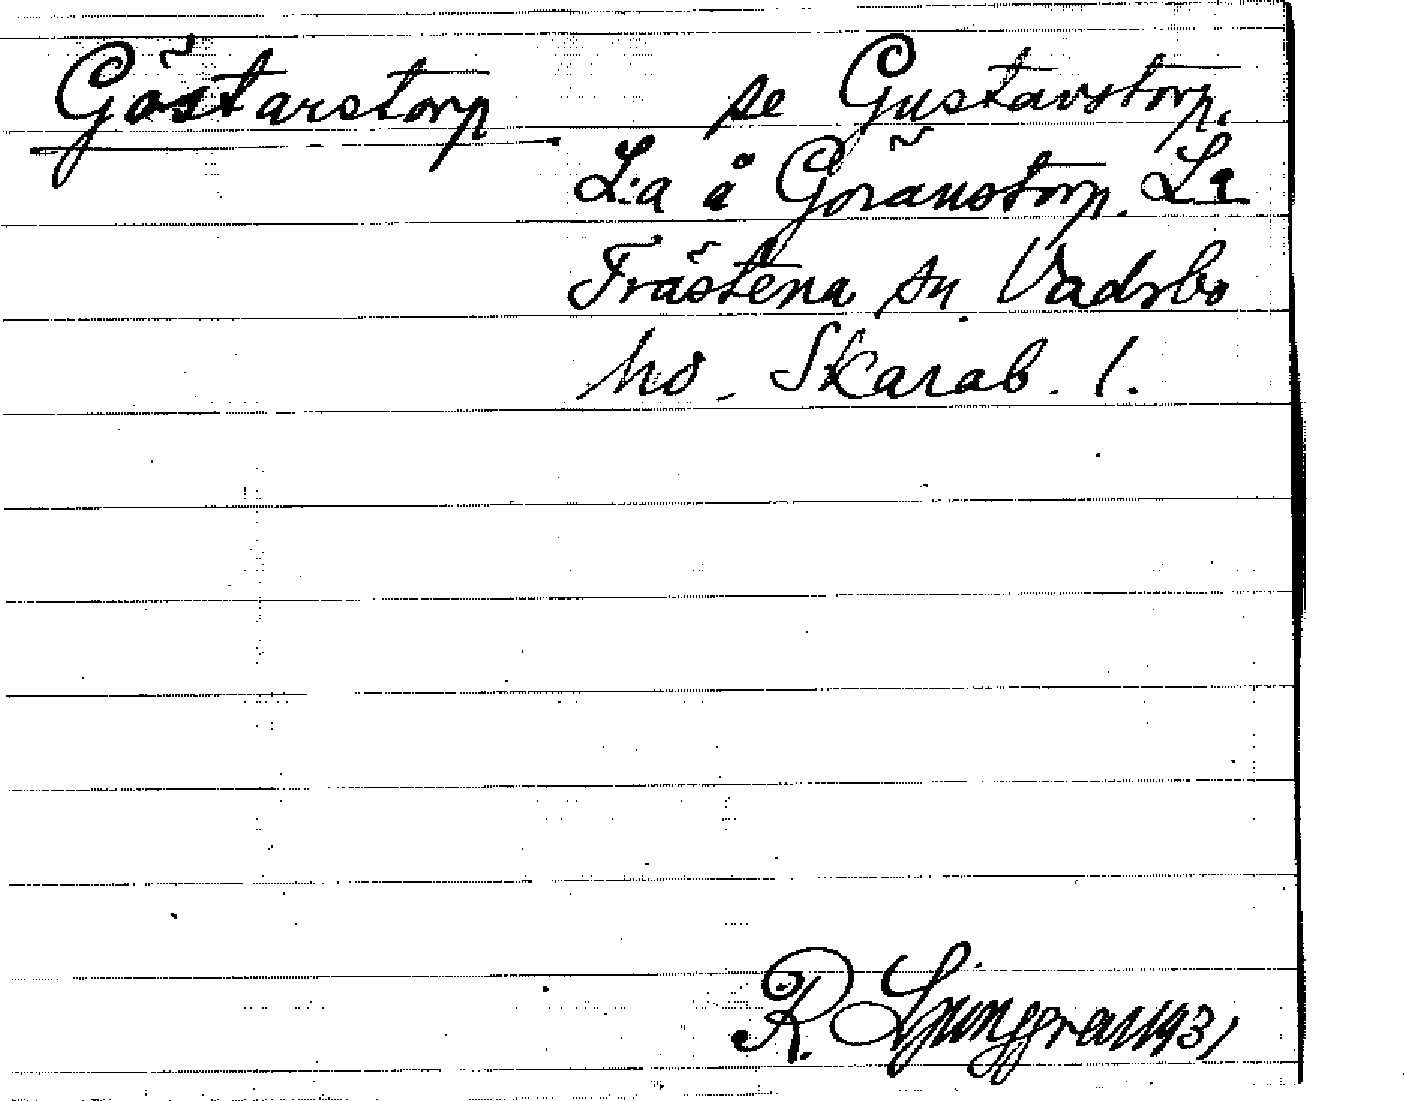 Göstarstorp se Gustavstorp.
L:a å Göranstorp. L:a
Frästena sn Vadsbo
hd. Skarab. l.
R. Ljunggran 1931